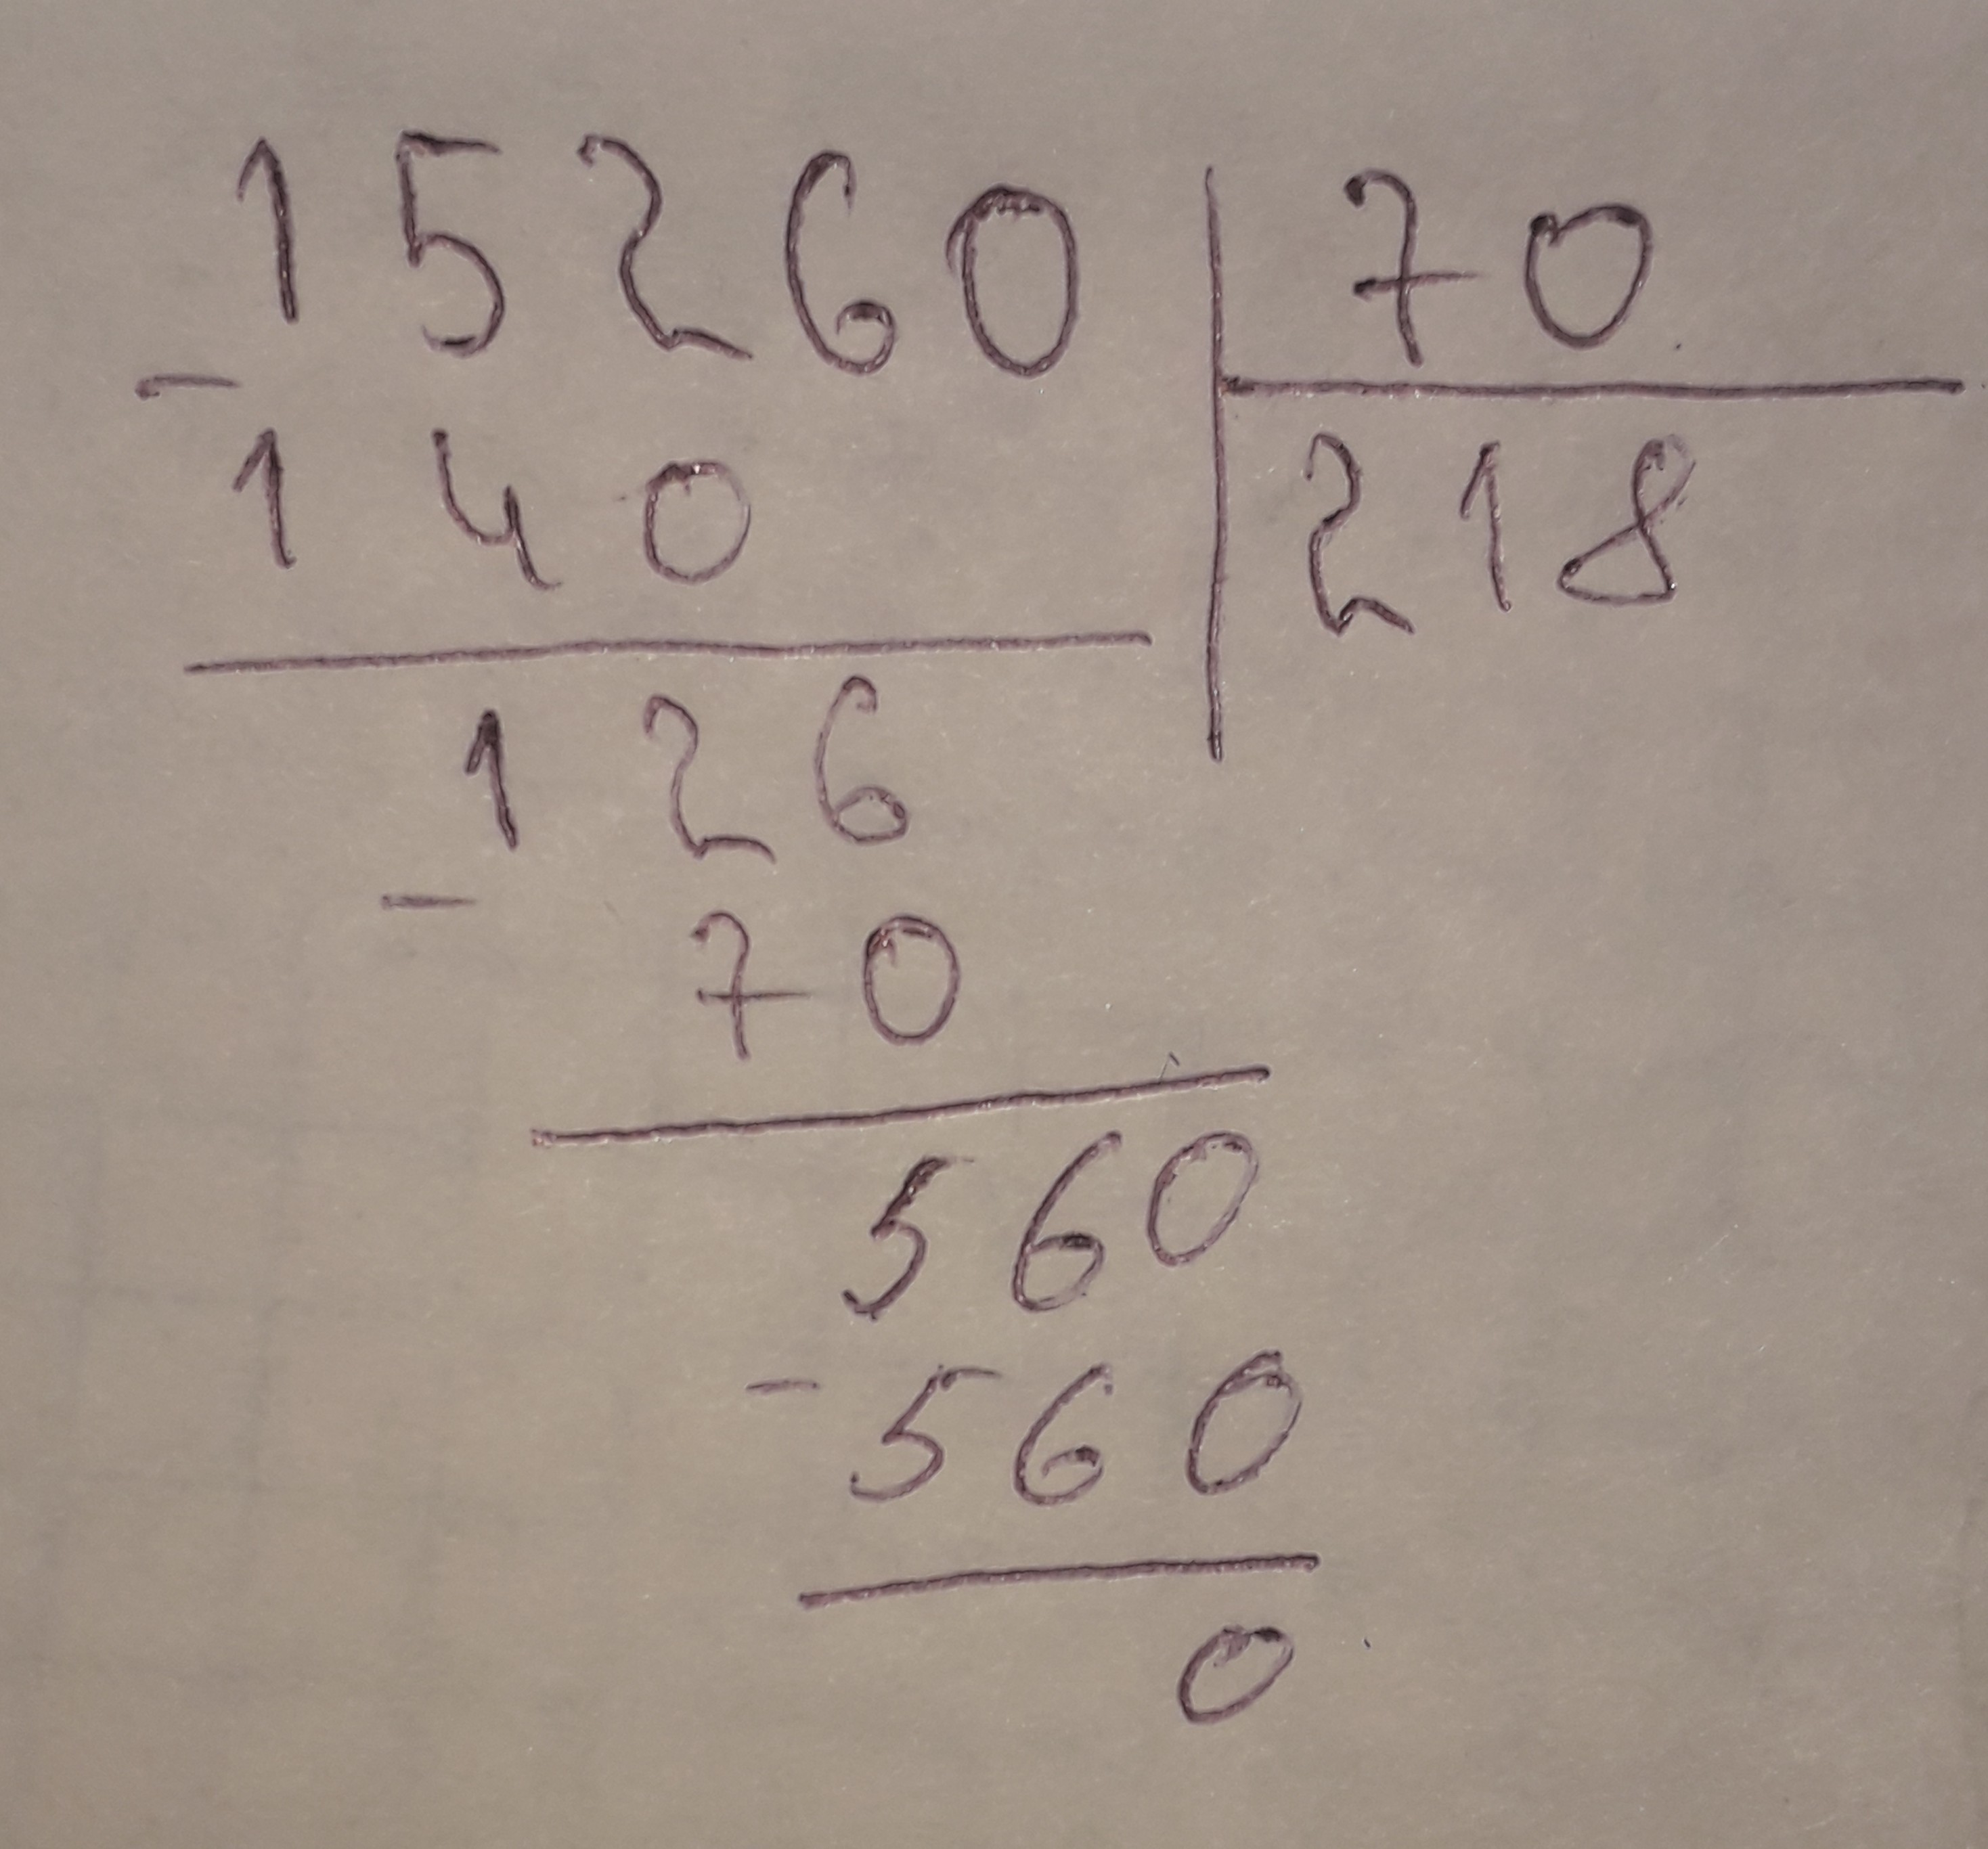 15260 | 70
- 140 | 218
126
- 70
560
- 560
0